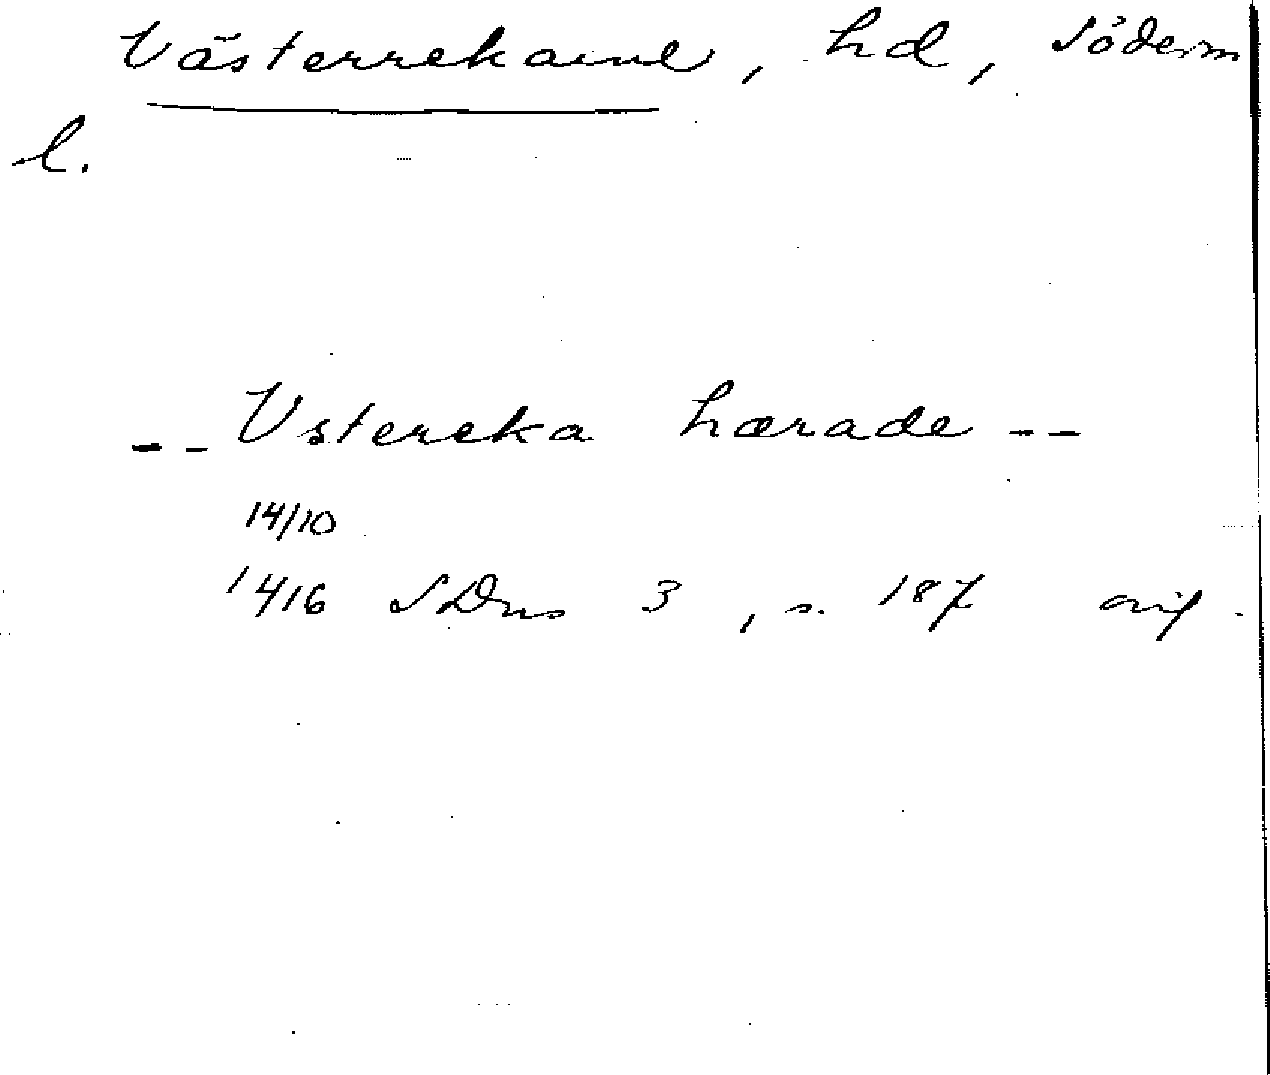 Västerrekarne, hd, Söderm
l.
-- Vstereka hærade --
14/10
1416 SDns 3, s. 187 orig.